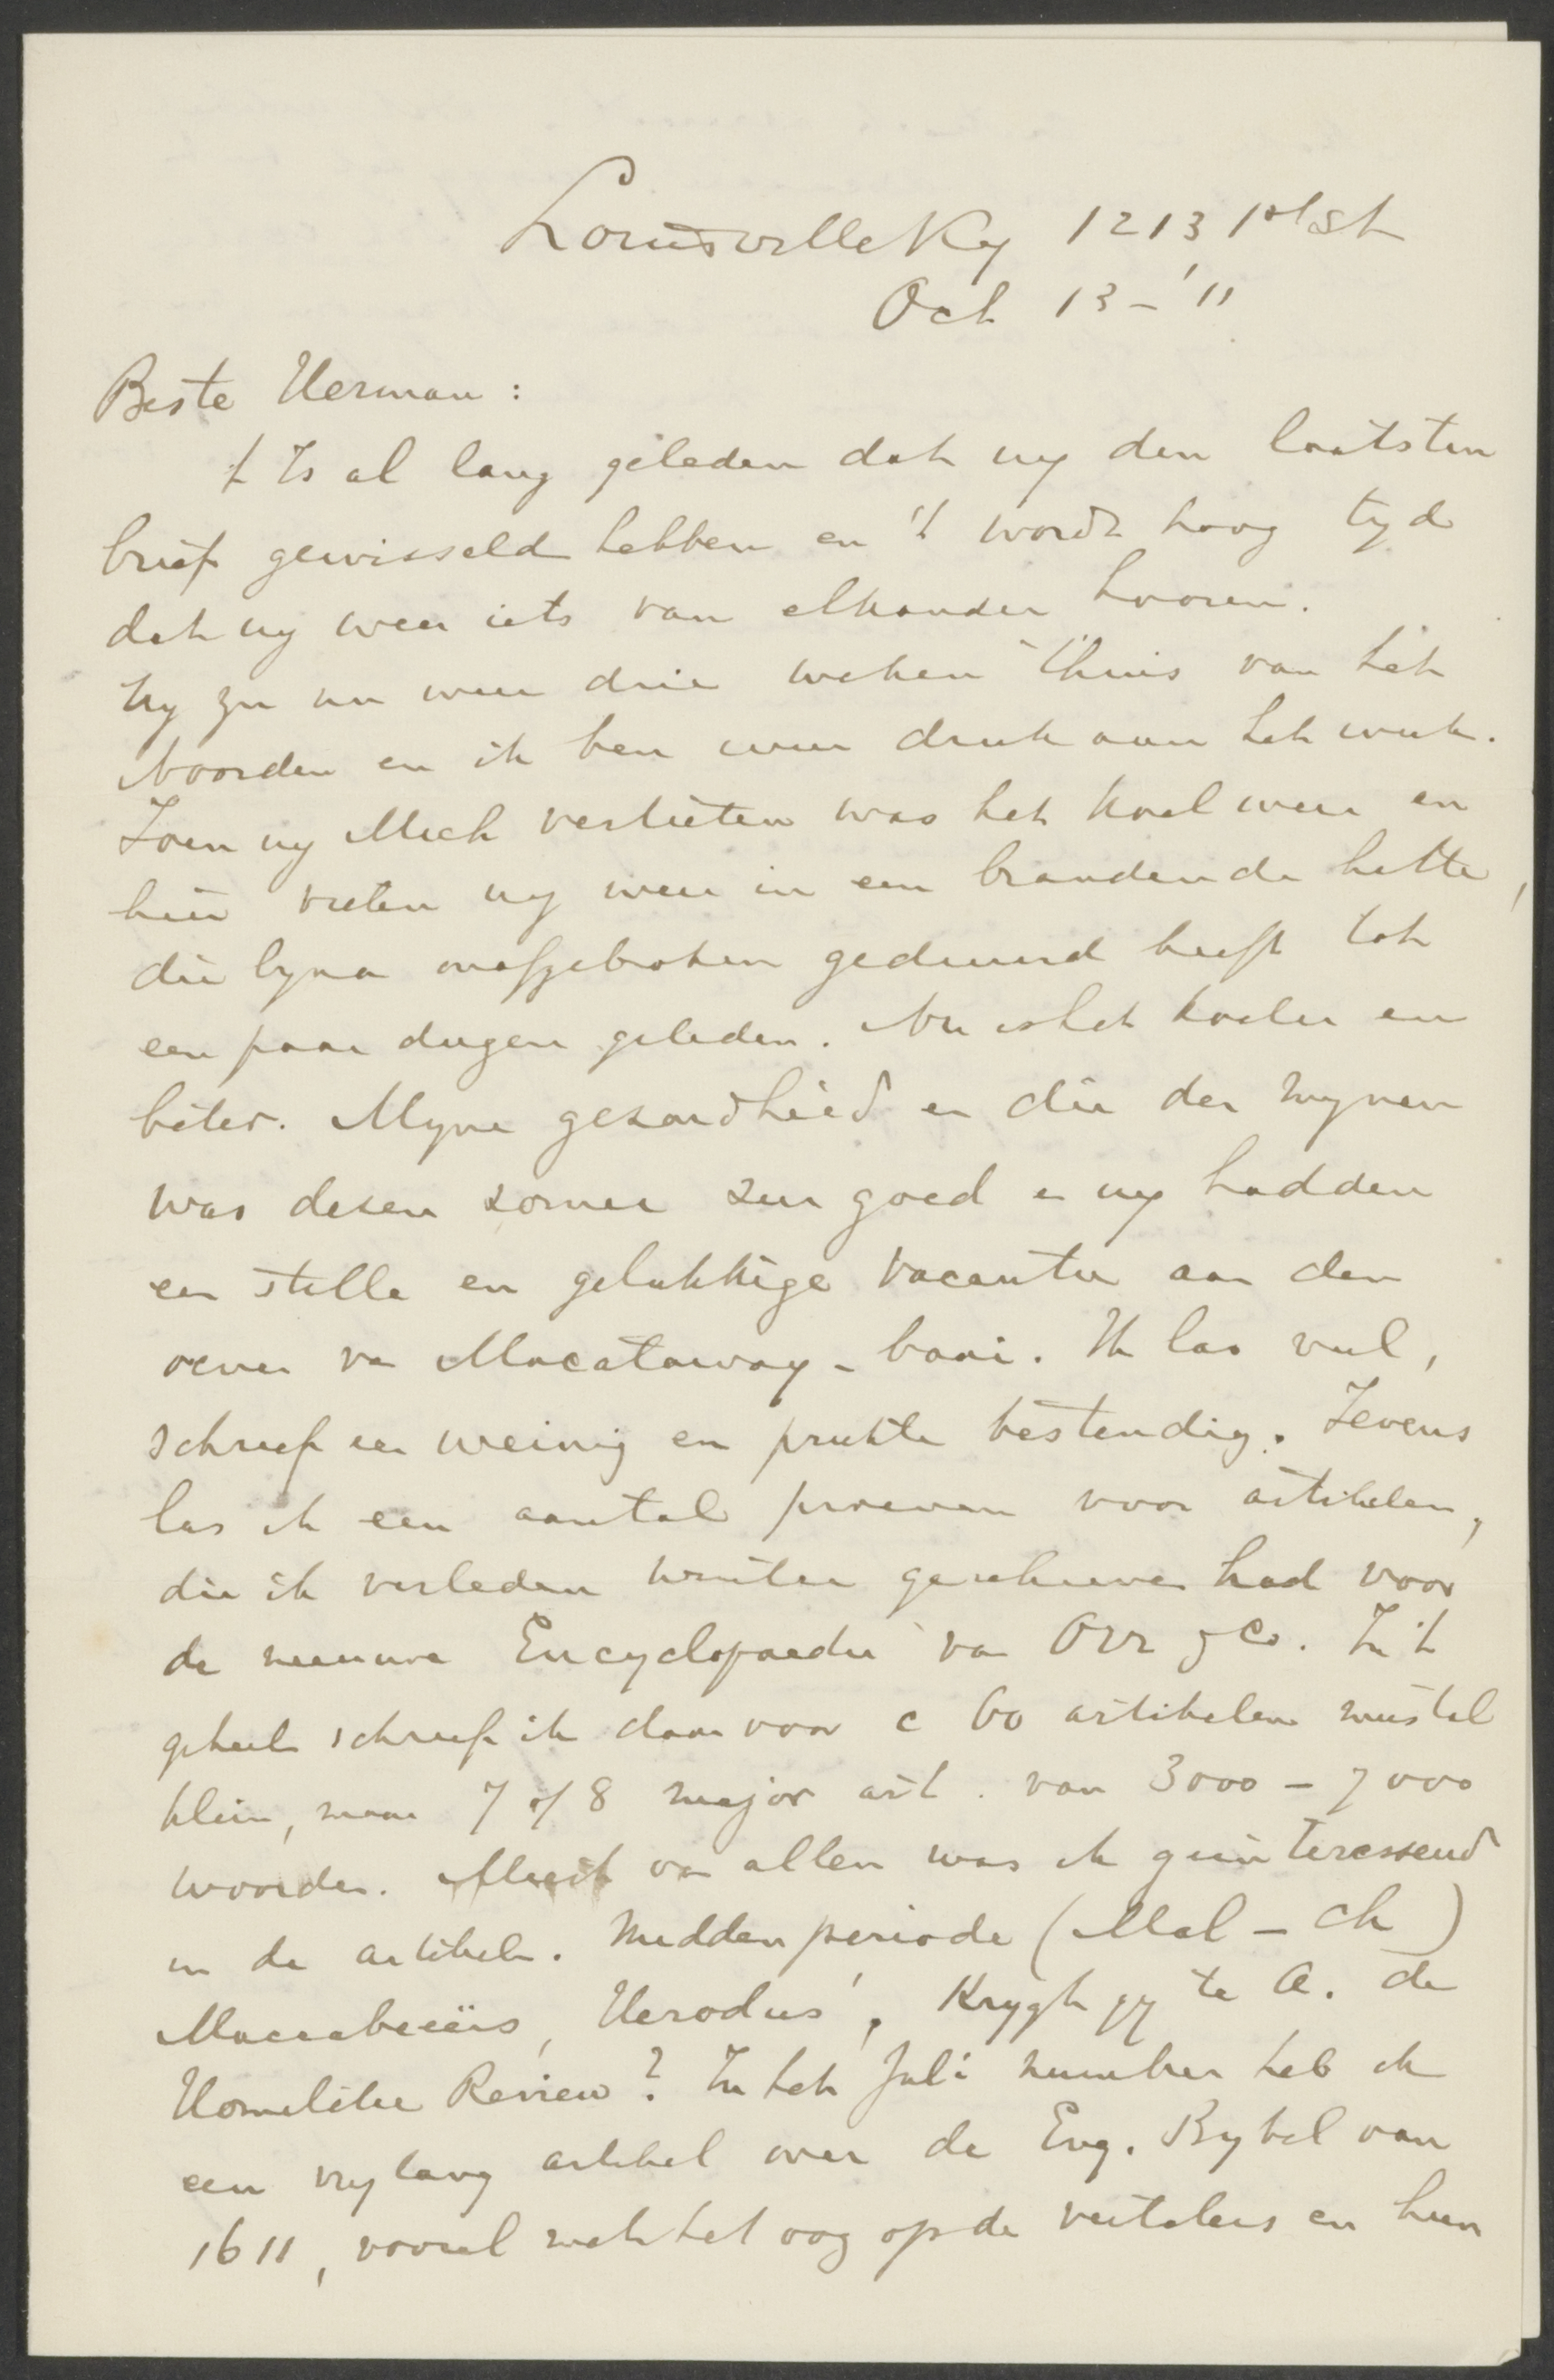 Louisville Ky 1213 1st St
Oct 13 - '11
Beste Herman:
't Is al lang geleden dat wy den laatsten
brief gewisseld hebben en 't wordt hoog tyd
dat wy weer iets van elkander hooren.
Wy zyn nu weer drie weken thuis van het
Noorden en ik ben weer druk aan het werk.
Toen wy Mich verlieten was het koel weer en
hier vielen wy weer in een brandende hitte,
die byna onafgebroken geduurd heeft tot
een paar dagen geleden. Nu is het koeler en
beter. Myne gezondheid en die der mynen
was dezen zomer zeer goed en wy hadden
een stille en gelukkige vacantie aan den
oever van Macatawa - baai. Ik las veel,
schreef een weinig en preekte bestendig. Tevens
las ik een aantal proeven voor artikelen,
die ik verleden winter geschreven had voor
de nieuwe Encyclopaedie van Orr & Co. In 't
geheel schreef ik daarvoor c 60 artikelen meestal
klein, maar 7 of 8 major art. van 3000 - 7000
woorden. Meest van allen was ik geinteresseerd
in de artikels. Midden periode (Mal - Ch)
Maccabeeërs, Herodus', Krygt gy te A. de
Homiletic Review? In het Juli nummer heb ik
een vry lang artikel over de Eng. Bybel van
1611, vooral met het oog op de vertalers en hun